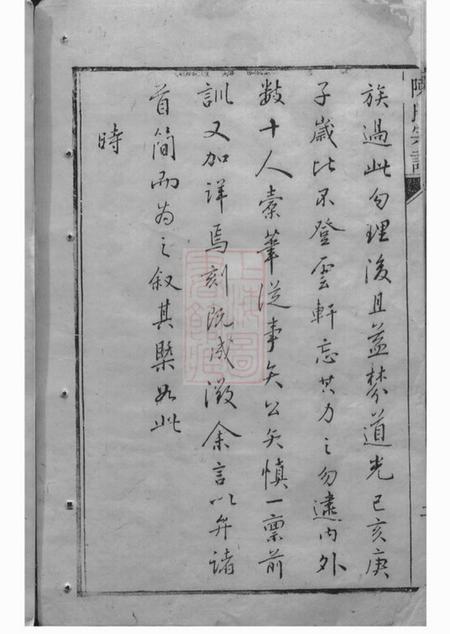 族過此勿理後且益棼道光己亥庚
子歲比不登雲軒忘其力之勿逮内外
数十人橐筆從事矢公矢慎一稟前
訓又加詳焉刻既成徵余言以弁諸
首简而为之叙其槩如此
時
上海圖書館藏